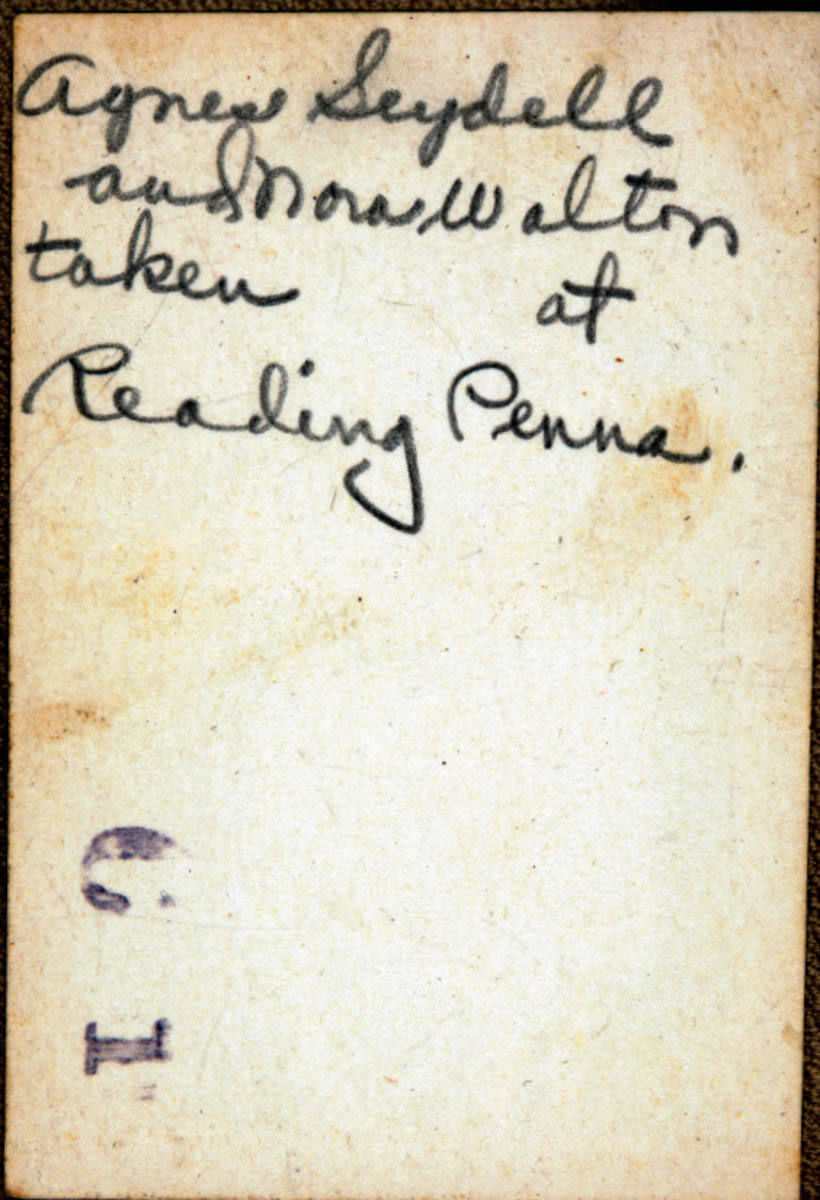 Agnes Seydell
and Nora Walton
taken at
Reading Penna.
C I